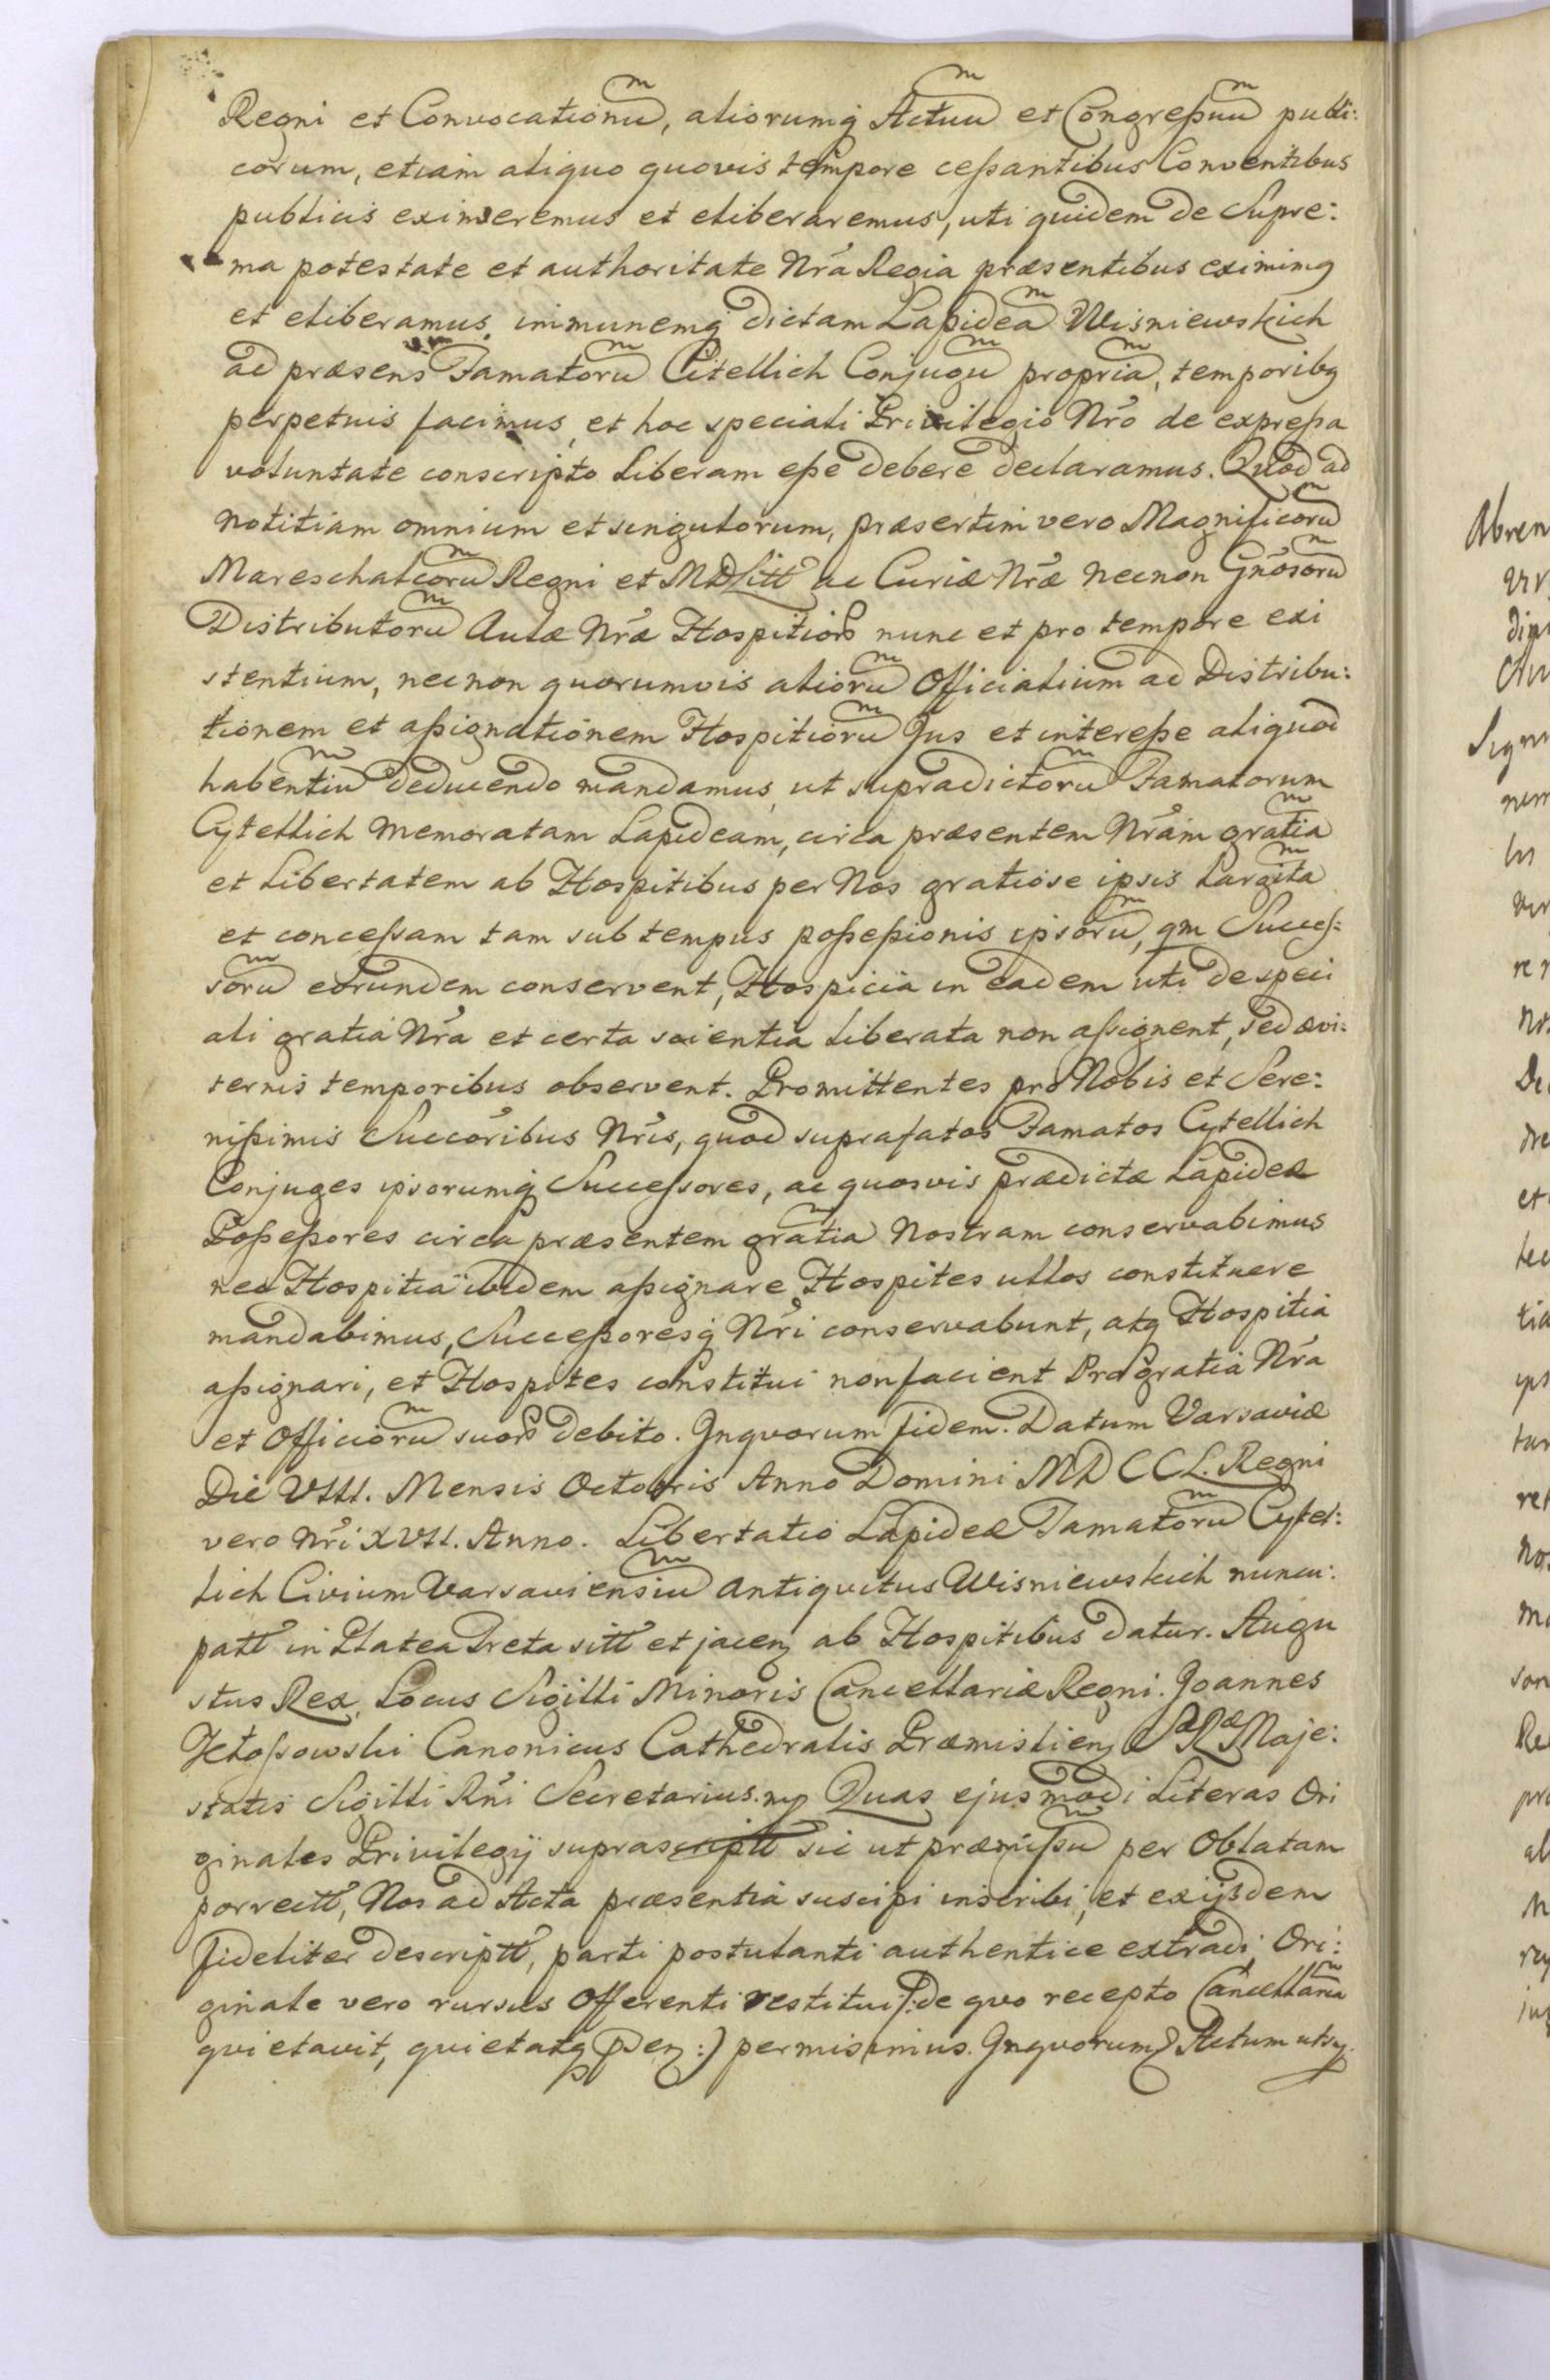 Regni et Convocationū, aliorumq Actuū et Congreßuū publi:
corum, etiam aliquo quovis tempore ceßantibus Conventibus
publicis eximeremus et eliberaremus, uti quidem de Supre:
ma potestate et authoritate Nra Regia præsentibus eximimq
et eliberamus, immunemq dictam Lapideā Wisniewskich
ad præsens Famatorū Citellich Conjugū propriā, temporibq
perpetuis facimus, et hoc speciali Privilegio Nro de expreßa
voluntate conscripto Liberam eße debere declaramus. Quod ad
notitiam omnium et singulorum, præsertim vero Magnificorū
Mareschalcorū Regni et MDLitt ac Curiæ Nræ necnon Gnosorū
Distributorū Aulæ Nræ Hospitior nunc et pro tempore exi
stentium, necnon quorumvis aliorū Officialium ad Distribu:
tionem et aßignationem Hospitiorū Jus et intereße aliquod
habentiū deducendo mandamus, ut supradictorū Famatorum
Cytellich memoratam Lapideam, circa præsentem Nram gratiā
et Libertatem ab Hospitibus per Nos gratiose ipsis Largitā
et conceßam tam sub tempus poßeßionis ipsorū, qm Succeß:
sorū eorundem conservent, Hospicia in eadem uti de speci
ali gratia Nra et certa scientia liberata non aßignent, sed ævi:
ternis temporibus observent. Promittentes pro Nobis et Sere:
nißimis Succoribus Nris, quod suprafatos Famatos Cytellich
Conjuges ipsorumq Succeßores, ac quosvis prædictæ Lapideæ
Poßeßores circa præsentem gratiā Nostram conservabimus
nec Hospitia ibidem aßignare Hospites ullos constituere
mandabimus, Succeßoresq Nri conservabunt, atq Hospitia
aßignari, et Hospites constitui non facient Pro gratia Nra
et Officiorū suor debito. Inqvorum fidem. Datum Varsaviæ
Die VIII. Mensis Octobris Anno Domini MDCCL. Regni
vero Nri XVII. Anno. Libertatio Lapideæ Famatorū Cytel:
lich Civium Varsaviensiū antiquitus Wisniewskich nuncu:
patt in Platea Freta sitt et jacen ab Hospitibus datur. Augu
stus Rex. Locus Sigilli Minoris Cancellariæ Regni. Joannes
Canonicus Cathedralis Præmislien S Ræ Maje:
statis Sigilli Rni Secretarius. mp Quas ejusmodi Literas Ori
ginales Privilegij suprascriptt sic ut præmißū per Oblatam
porrectt, Nos ad Acta præsentia suscipi inscribi, et ex ijsdem
fideliter descriptt, parti postulanti authentice extradi, Ori:
ginale vero rursus Offerenti restitui /:de qvo recepto Cancellariā
qvietavit, qvietatq pden :/ permisimus. Inqvorum Actum ut sq.